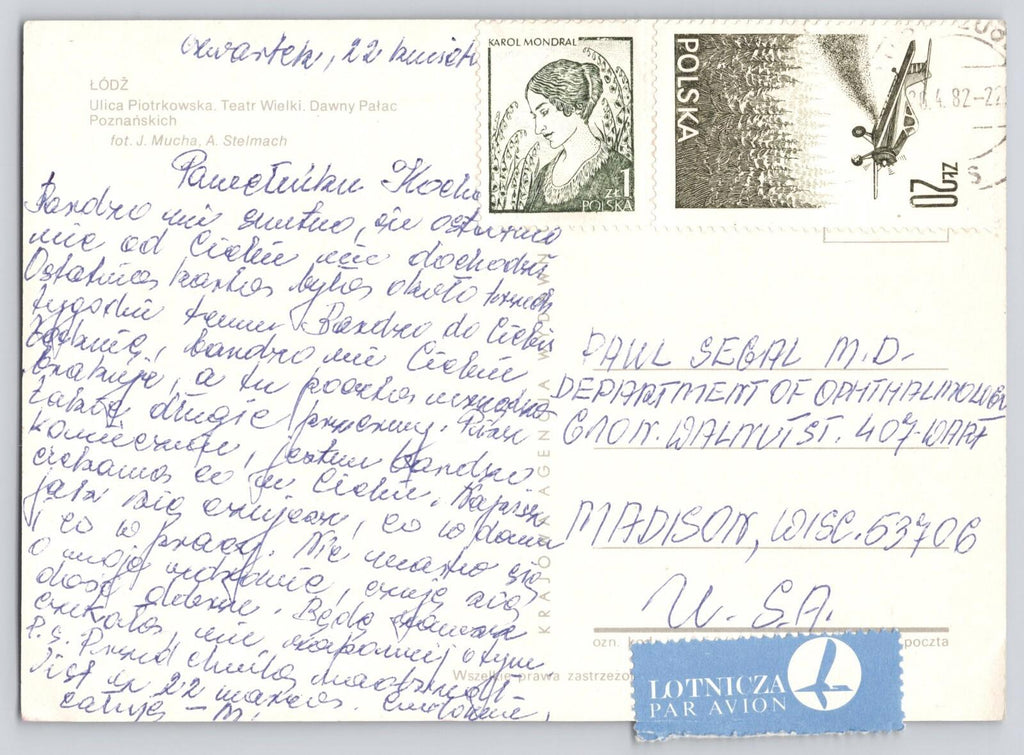 czwartek, 22 kwietn
ŁÓDŹ
Ulica Piotrkowska. Teatr Wielki. Dawny Pałac
Poznańskich
fot. J. Mucha, A. Stelmach
Kocha
Bardzo mi smutno, że ostatnio
nic od Ciebie nie dochodzi
Ostatnia kartka była około trzech
tygodni temu. Bardzo do Ciebie
tęsknię, bardzo mi Ciebie
brakuje, a tu poczta
długie przerwy. Pisz
koniecznie, jestem bardzo
ciekawa co u Ciebie. Napisz
jak się czujesz, co w domu
i co w pracy. Nie martw się
o moje zdrowie, czuję się
dość dobrze. Będę zawsze
czekała, nie zapomnij o tym
P.S. Przed chwilą nadszedł
list z 22 marca.
całuję - M.
KAROL MONDRAL
1 ZŁ
POLSKA
POLSKA
20 ZŁ
4.82-22
KRAJOWA AGENCJA WYDAWN
PAUL SEGAL M.D.
DEPARTMENT OF OPHTHALMOLOGY
WALNUT ST. 407-WARF
MADISON, WISC. 53706
U.S.A.
ozn. poczta
Wszelkie prawa zastrzeżo
LOTNICZA
PAR AVION